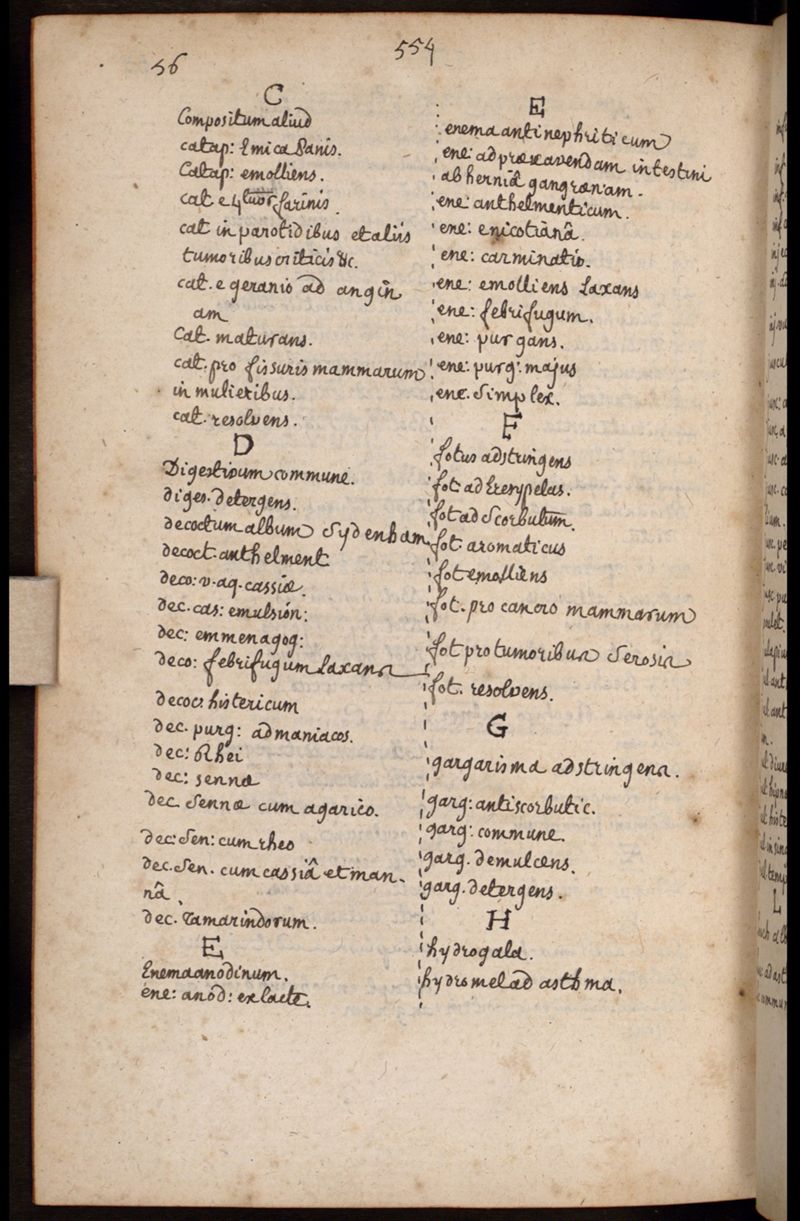 56
554
C
Compositum aliud
catap: E mica Panis.
Catap: emolliens.
cat e 4tuor farinis.
cat in parotidibus et aliis
tumoribus criticis &c.
cat. e geranio ad angin
am
Cat. maturans.
cat. pro fissuris mammarum
in mulieribus.
cat. resolvens.
D
Digestivum commune.
diges. detergens.
decoctum album Sydenham
decoct. anthelment
deco: v. aq. cassiæ.
dec. cas: emulsion:
dec: emmenagog:
deco: febrifugum Laxans
decoc: histericum
dec. purg: ad maniacos.
dec: Rhei
dec: sennæ
dec. Sennæ cum agarico.
dec: Sen: cum rheo
dec. Sen. cum cassiâ et man-
nâ.
dec. Tamarindorum.
E
Enema anodinum.
ene: anod: ex lacte.
E
enema antinephriticum
ene: ad præcavendam intestini
ab herniâ gangrænam.
ene: anthelmenticum.
ene: e nicotianâ.
ene: carminativ.
ene: emolliens Laxans
ene: febrifugum.
ene: purgans.
ene: purg: majus
ene. Simplex.
F
fotus adstringens
fot ad Ererypelas.
fot ad Scorbutum.
fot aromaticus
fot emolliens
fot. pro cancro mammarum
fot pro tumoribus Serosis
fot. resolvens.
G
gargarisma adstringens.
garg: antiscorbutic.
garg: commune.
garg. demulcens.
garg. detergens.
H
hydrogala.
hydromel ad asthma.